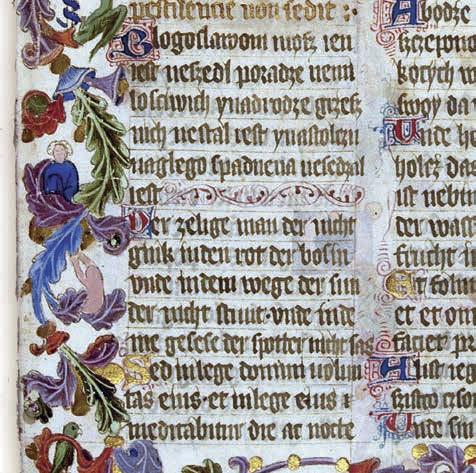 pestilencie non sedit :·
Blogoslawoni mosz ien
iest neszedl poradze nemi
losciwich ynadrodze grzesz
nich nestal iest ynastolczu
naglego spadnena nesedzal
iest
Der zelige man der nicht
gink inden rot der bosin
vnde indem wege der sun
der nicht stunt vnde inde
me gesese der spotter nicht sas
Sed inlege domini uolun
tas eius et inlege eius
meditabitur die ac nocte
A bodze
kotych
swoy da
Unde he
holcz das
ist nebin
der wass
frucht i
Et folium
et om
faciet pr
A list ieg
Unde sin